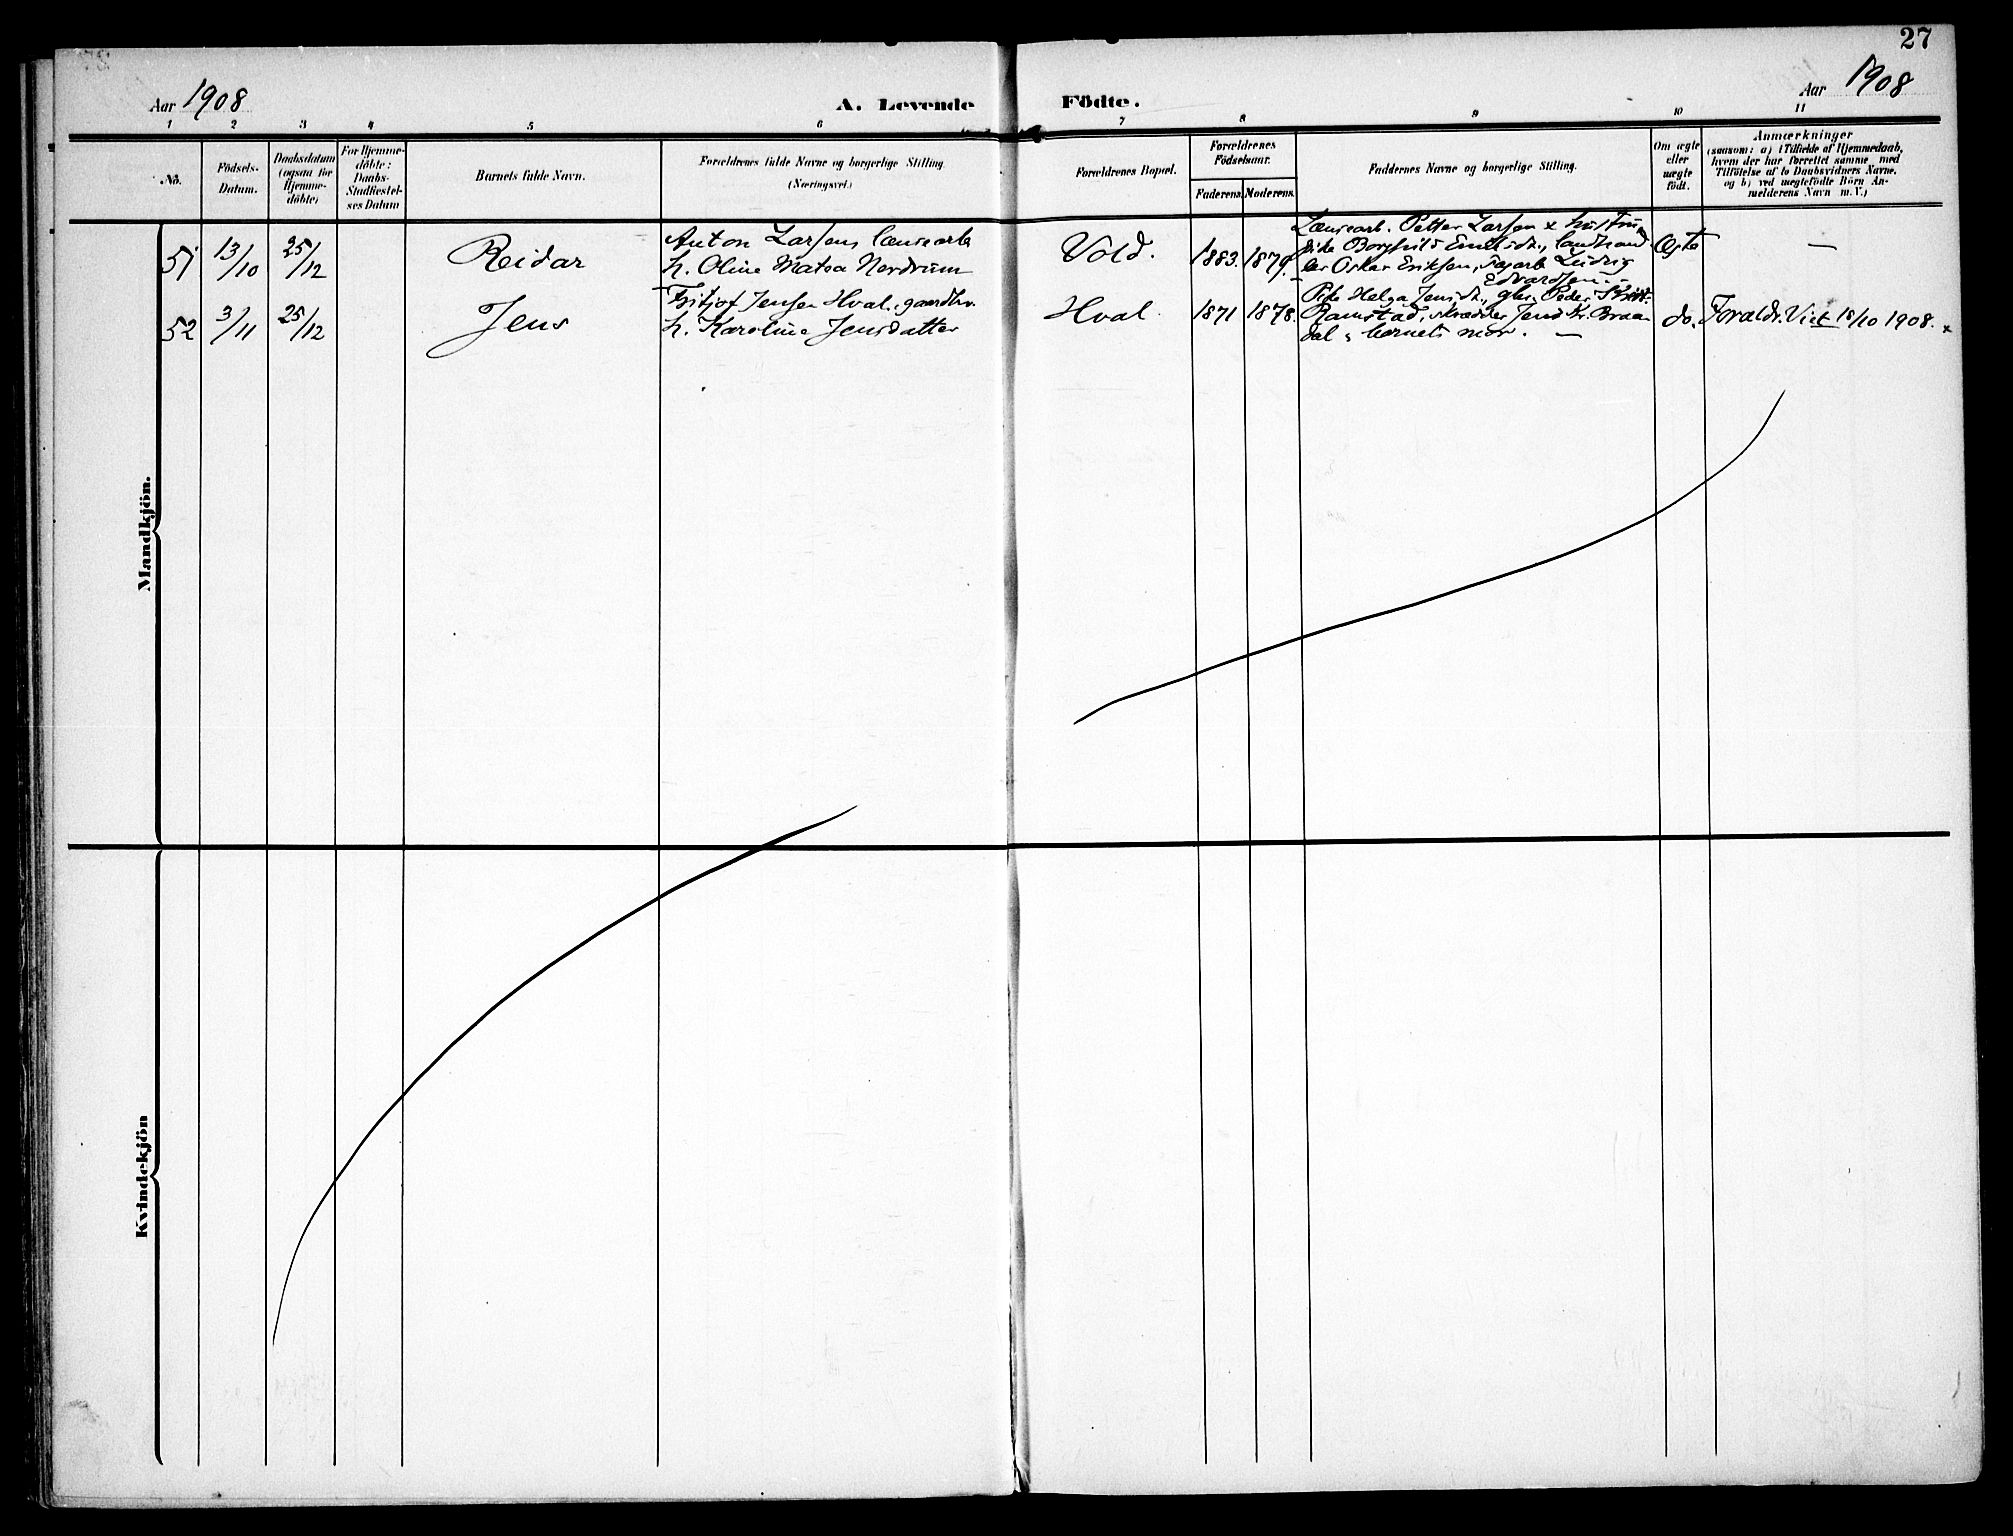 27
Aar 1908
A. Levende Födte.
Aar 1908
1 2 3 4 5 6 7 8 9 10 11
No.
Födsels-
Datum.
Daabsdatum
(ogsaa for
Hjemme-
döbte)
For Hjemme-
döbte:
Daabs-
Stadfæstel-
ses Datum
Barnets fulde Navn.
Forældrenes fulde Navne og borgerlige Stilling.
(Næringsvei.)
Forældrenes Bopæl.
Forældrenes
Födselsaar.
Faderens.
Moderens.
Faddernes Navne og borgerlige Stilling.
Om ægte
eller
uægte
født.
Anmærkninger
(saasom: a) i Tilfælde af Hjemmedaab,
hvem der har forrettet samme, med
Tilföielse af to Daabsvidners Navne,
og b) ved uægtefödte Börn An-
melderens Navn m. V.)
Mandkjön.
51
13/10
25/12
Reidar
Anton Larsen lænsearb
h. Oline Matea Nordrum
Vold.
1883.
1879.
Lænsearb. Petter Larsen & hustru
pike Borghild Emilsdt., landhand
ler Oskar Eriksen, Ludvig
Edvardsen. —
Ægte
—
52
3/11
25/12
Jens
Fritjof Jensen Hval. gaardbr.
h. Karoline Jensdatter
Hval.
1871
1878.
Pike Helga Jensdt., gbr. Peder
Ramstad, skrædder Jens Kr. Braa
dal, barnets mor. —
do.
Foraldr. Viet 18/10 1908.
Kvindekjön